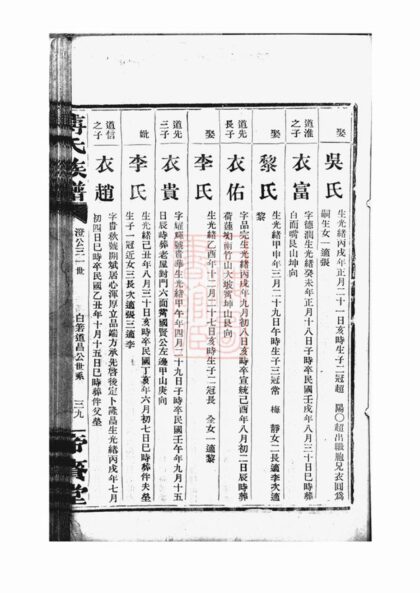 娶 吳氏 生光緒丙戌年正月二十一日亥時生子二冠超 陽〇超出繼胞兄衣圓爲嗣生女一適張
道淮之子 衣富 字德潤生光緒癸未年正月十八日子時卒民國壬戌年八月三十日巳時葬白面嘴艮山坤向
娶 黎氏 生光緒甲申年三月二十九日午時生子三冠常 梅 靜女二長適李次適黎
道先長子 衣佑 字品完生光緒丙戌年九月初八日亥時卒宣統己酉年八月初二日辰時葬荷蓮 南竹山大坡 坤山艮向
娶 李氏 生光緒乙酉年十二月二十七日亥時生子二冠長 全女一適黎
道先三子 衣貴 字 號貴 生光緒甲午年四月二十九日子時卒民國壬午年九月十五日辰時葬老屋對門六面 國賢公左邊甲山庚向
妣 李氏 生光緒己丑年八月三十日亥時卒民國丁亥年六月初七日巳時葬伴夫塋生子一冠近女三長次適張三適李
道信之子 衣趙 字貴秋號開斌居心渾厚立品端方承先啓後定卜隆昌生光緒丙戌年七月初四日巳時卒民國乙丑年十月十五日巳時葬伴父塋
氏族譜
澄公三一世
白若道昌公世系
三九
堂